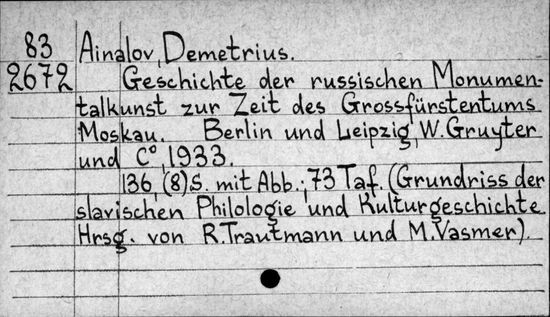 83 Ainalov, Demetrius.
2672 Geschichte der russischen Monumen-
talkunst zur Zeit des Grossfürstentums
Moskau. Berlin und Leipzig, W. Gruyter
und C°, 1933.
136, (8) S. mit Abb.; 73 Taf. (Grundriss der
slavischen Philologie und Kulturgeschichte
Hrsg. von R. Trautmann und M. Vasmer)